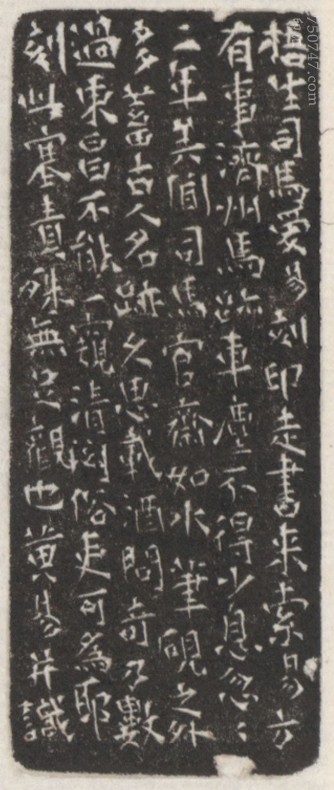 梧生司馬愛易刻印走書来索易方
有事濟州馬跡車塵不得少息忽〻
二年矣聞司馬官齋如水筆硯之外
多蓄古人名跡久思載酒問奇乃數
過東昌不能一窺清閟俗吏可為耶
刻此塞責殊無足觀也黄易并識
50747.com